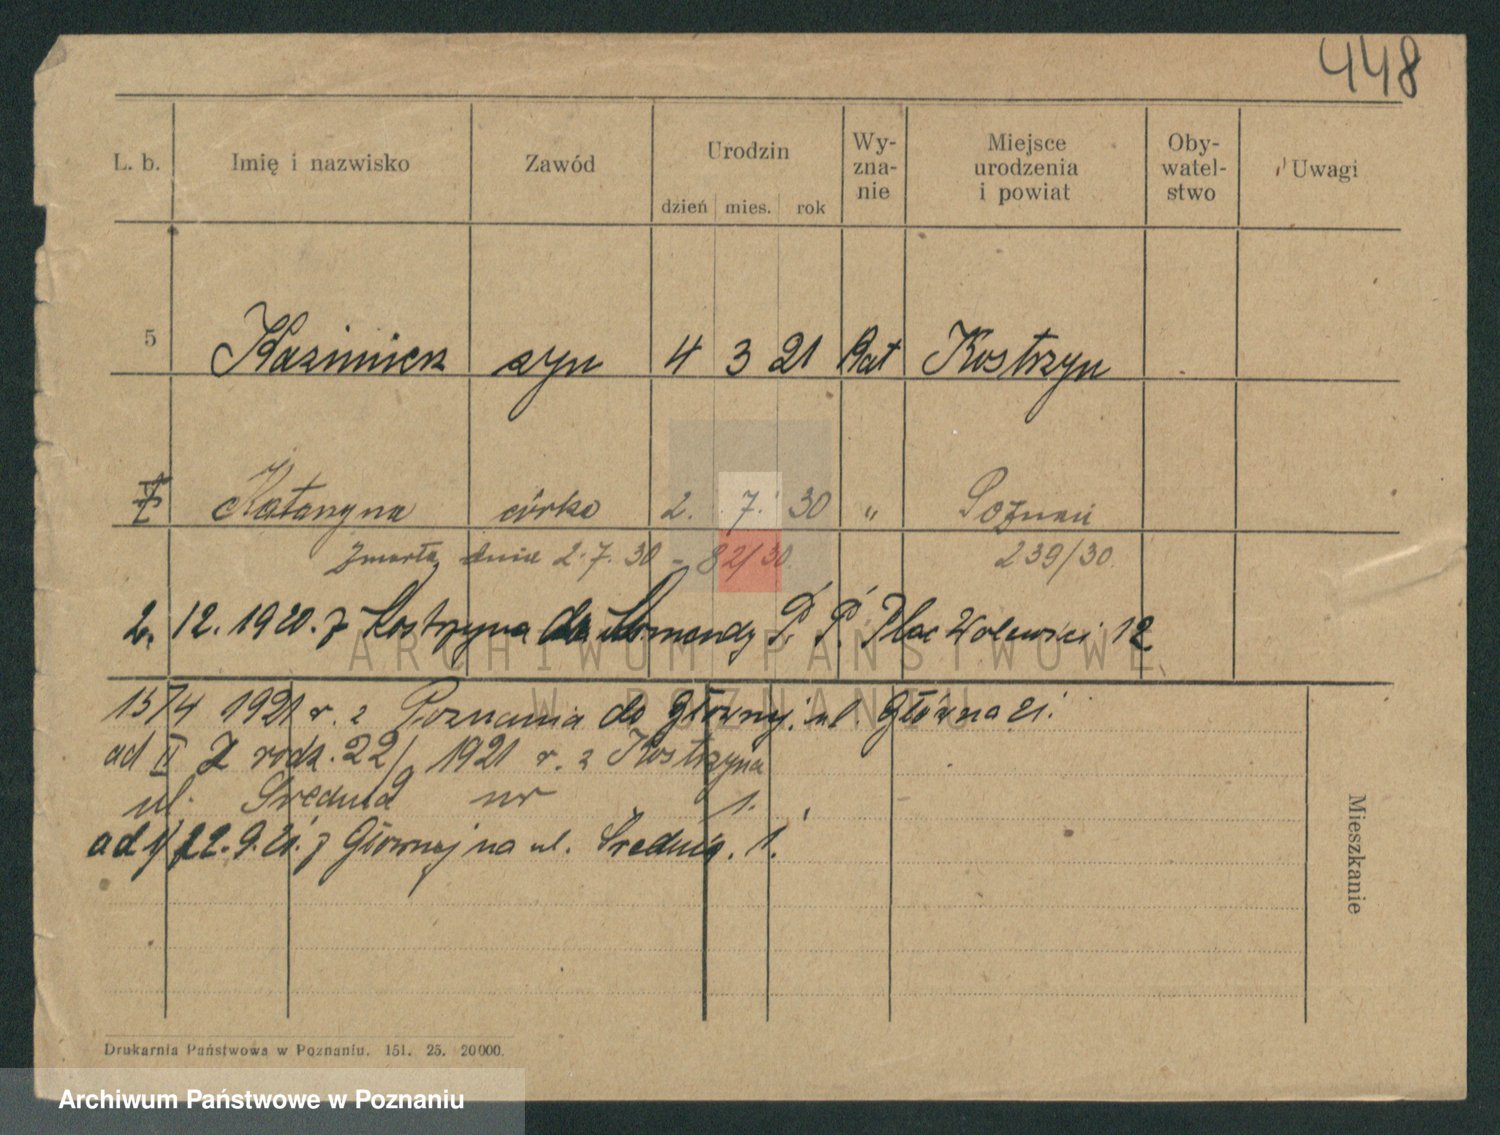 448
L. b. Imię i nazwisko Zawód Urodzin dzień mies. rok Wy-zna-nie Miejsce urodzenia i powiat Oby-watel-stwo Uwagi
5 Kazimierz syn 4 3 21 kat Kostrzyn
Katarzyna córka 2. 7. 30 " Poznań
Zmarła dnia 2.7.30 - 82/30 239/30.
2. 12. 1920. z Kostrzyna do Komendy P. P. Plac Wolności 12
ARCHIWUM PAŃSTWOWE
W POZNANIU
15/4 1921 r. z Poznania do Główny, ul. Główna 21.
ad II z rodz. 22/ 1921 r. z Kostrzyna
ul. Średnia nr 1.
ad 1/ 22. 9. 21. z Głównej na ul. Średnia. 1.
Mieszkanie
Drukarnia Państwowa w Poznaniu. 151. 25. 20000.
Archiwum Państwowe w Poznaniu